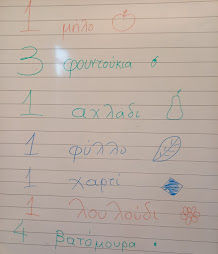 1 μήλο
3 φουντούκια
1 αχλάδι
1 φύλλο
1 χαρτί
1 λουλούδι
4 βατόμουρα